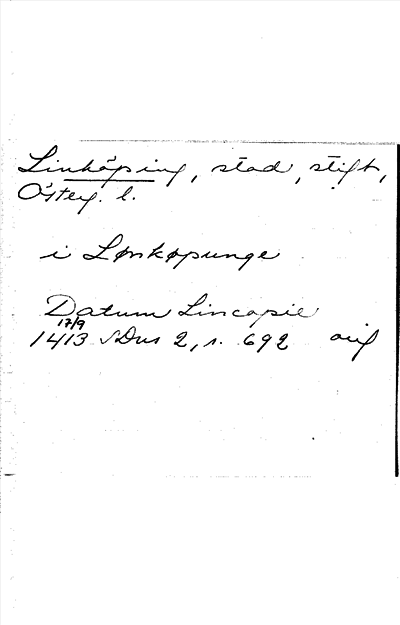 Linköping, stad, stift,
Österg. l.
i Lønkøpunge
Datum Lincopie
17/9
1413 SDns 2, s. 692 orig